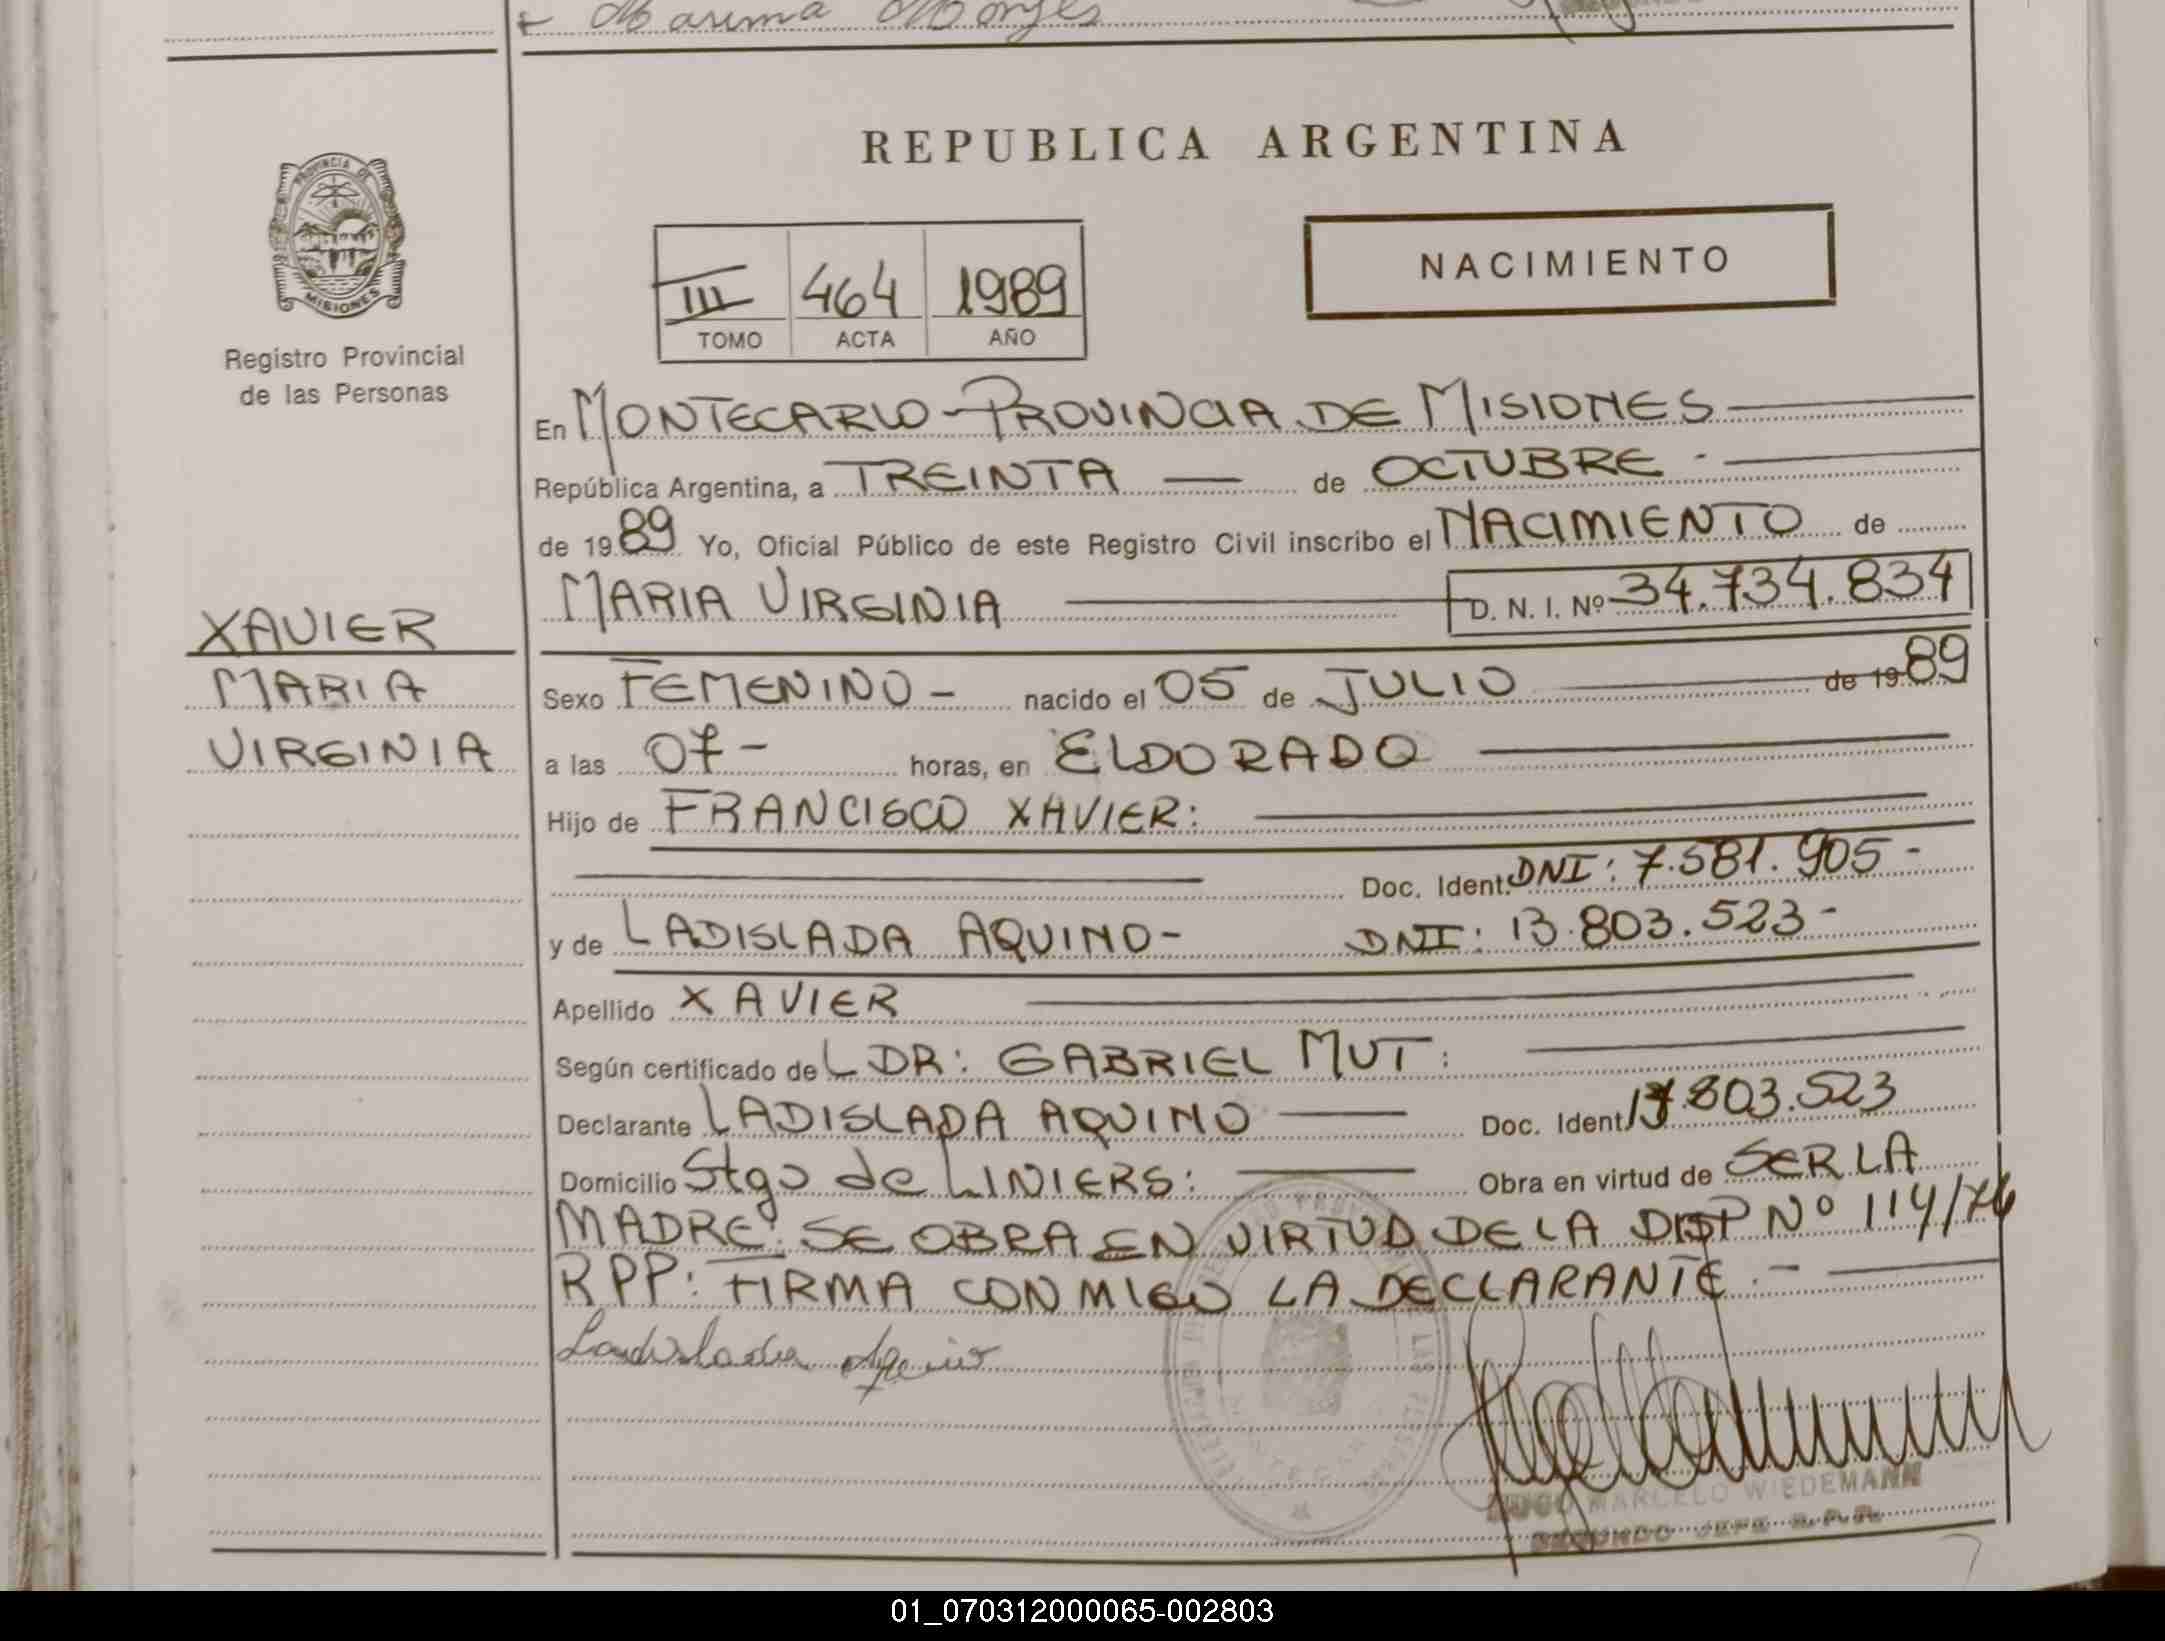 Maxima Monges
PROVINCIA DE
MISIONES
Registro Provincial
de las Personas
REPUBLICA ARGENTINA
NACIMIENTO
III 464 1989
TOMO ACTA AÑO
En MONTECARLO - PROVINCIA DE MISIONES
República Argentina, a TREINTA de OCTUBRE -
de 1989 Yo, Oficial Público de este Registro Civil inscribo el NACIMIENTO de
MARIA VIRGINIA D. N. I. Nº 34.734.834
XAVIER
MARIA
VIRGINIA
Sexo FEMENINO - nacido el 05 de JULIO de 1989
a las 07 - horas, en ELDORADO
Hijo de FRANCISCO XAVIER:
Doc. Ident. DNI: 7.581.905 -
y de LADISLADA AQUINO - DNI: 13.803.523 -
Apellido XAVIER
Según certificado de L DR: GABRIEL MUT:
Declarante LADISLADA AQUINO Doc. Ident. 13.803.523
Domicilio Stgo de LINIERS: Obra en virtud de SER LA
MADRE: SE OBRA EN VIRTUD DE LA DISP Nº 114/76
RPP: FIRMA CONMIGO LA DECLARANTE. -
Ladislada Aquino
HUGO MARCELO WIEDEMANN
SEGUNDO JEFE R.P.P.
01_070312000065-002803